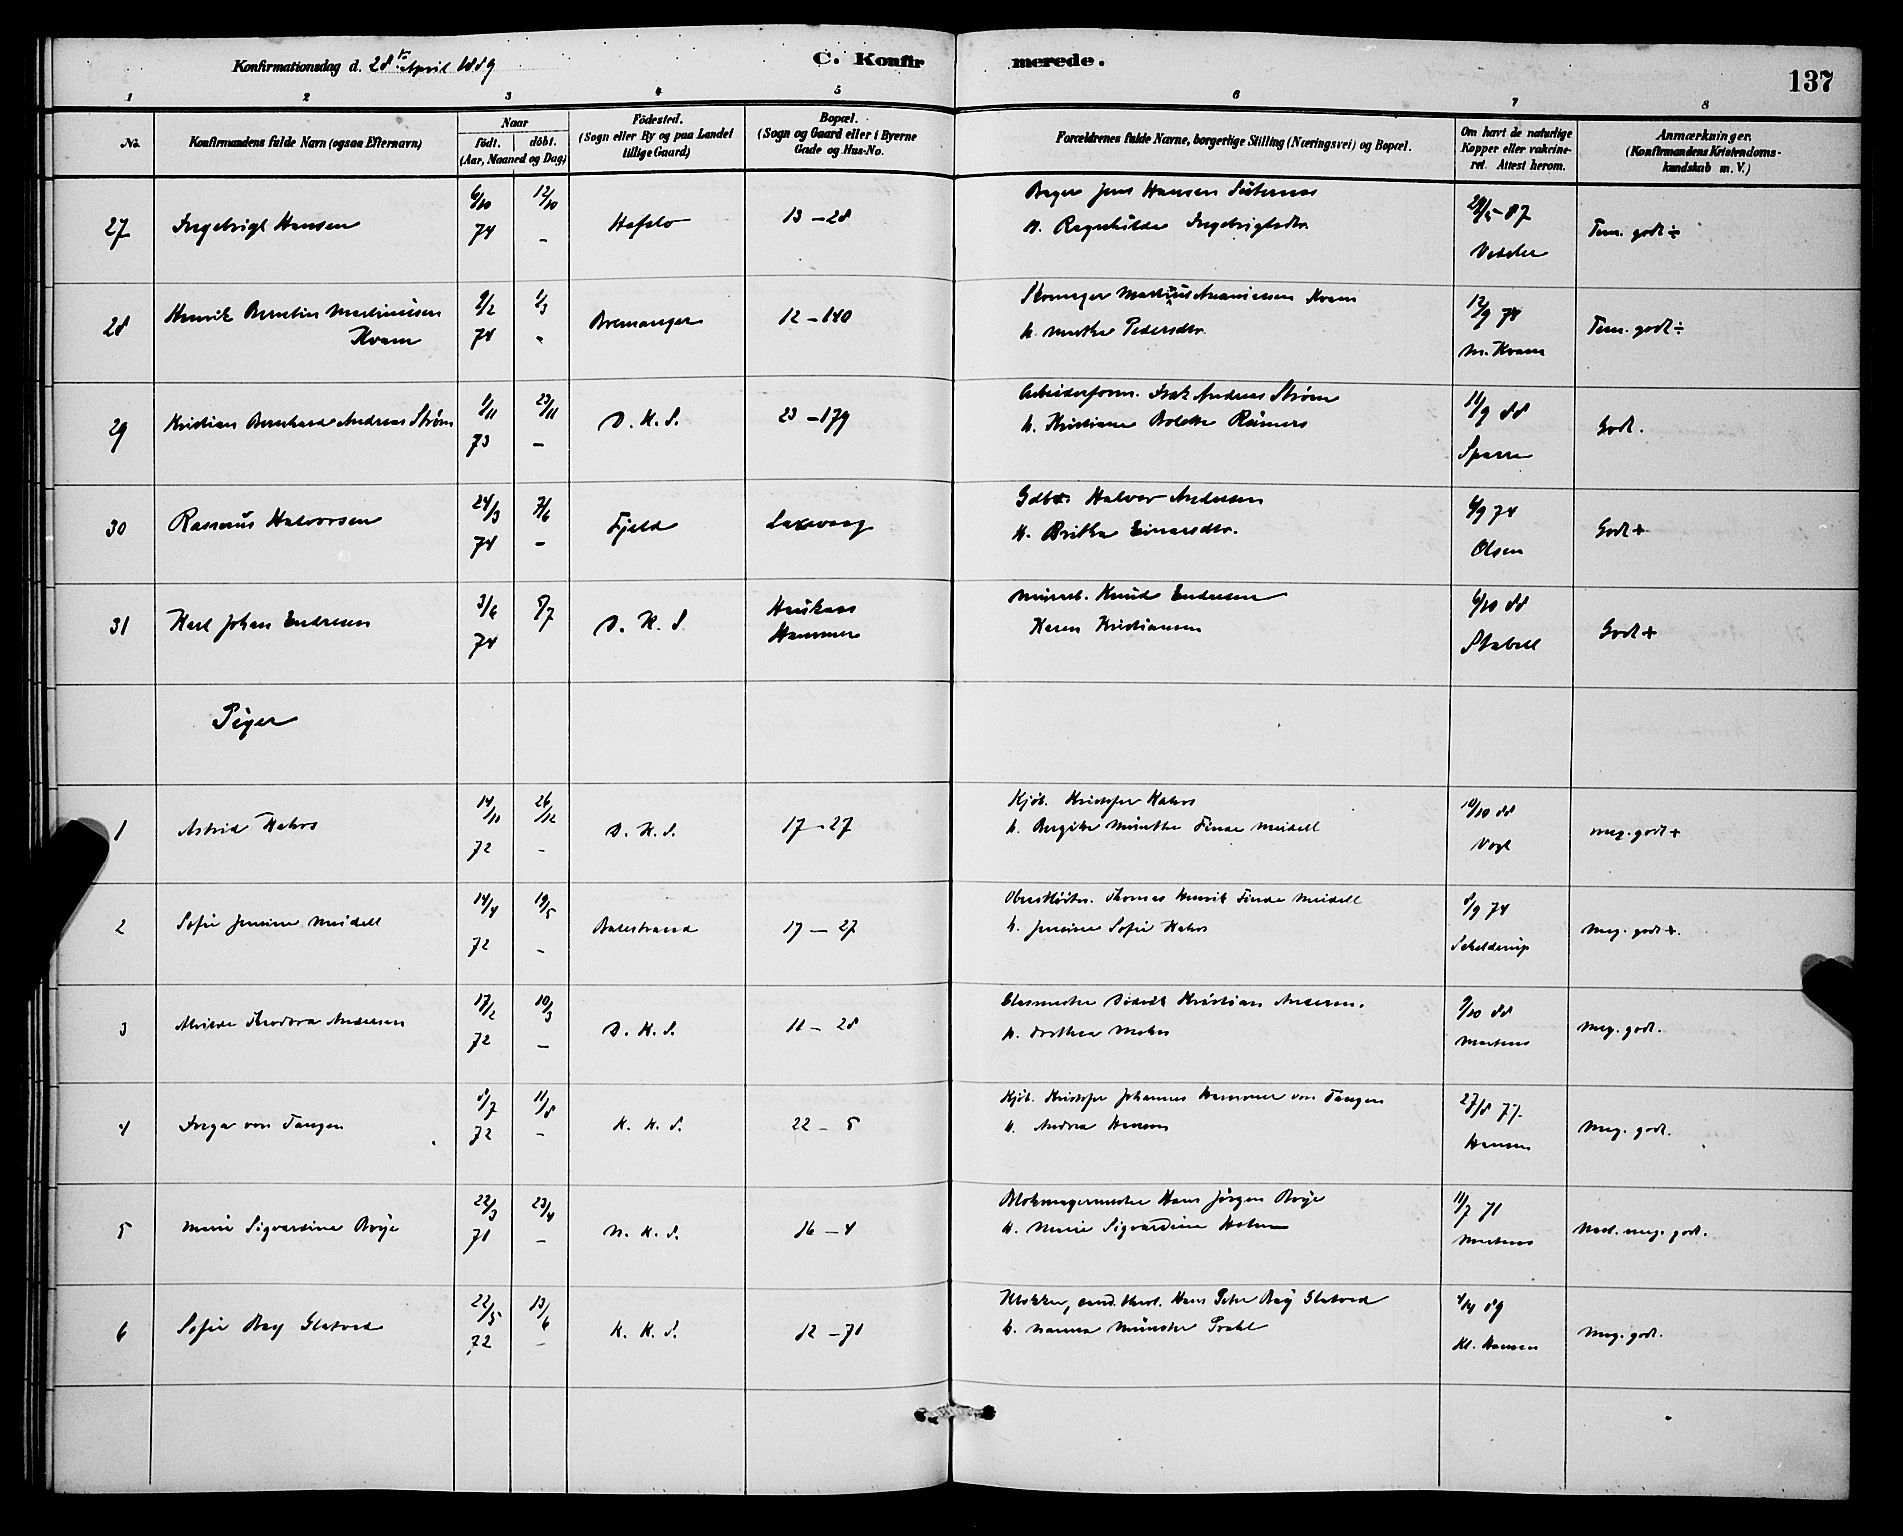 Konfirmationsdag d. 28de April 1889
C. Konfir merede.
137
1 2 3 4 5 6 7 8
No.
Konfirmandens fulde Navn (ogsaa Efternavn)
Naar
födt. döbt.
(Aar, Maaned og Dag)
Födested.
(Sogn eller By og paa Landet
tillige Gaard)
Bopæl.
(Sogn og Gaard eller i Byerne
Gade og Hus-No.
Forældrenes fulde Navne, borgerlige Stilling (Næringsvei) og Bopæl.
Om havt de naturlige
Kopper eller vakcine-
ret. Attest herom.
Anmærkninger.
(Konfirmandens Kristendoms-
kundskab m. V.)
27 Ingebrigt Hansen 6/10 74 12/10 - Hafslo 13 - 28
Bager Jens Hansen
H. Ragnhilda Ingebrigtsdtr.
87
Tem. godt ÷
28 Henrik Berntin Martinusen
Kvam
9/2 74 1/3 - Bremanger 12 - 140
Skomager Martinus Kvam
H. Pedersdtr.
12/9 74
M. Kvam
Tem. godt ÷
29 Kristian Bernhard Andreas Strøm 1/11 73 23/11 - D. K. S. 23 - 179
Arbeiderform. Isak Andreas Strøm
H. Kristiane Bolette
11/9 88
Sparre
Godt.
30 Rasmus Halvorsen 24/3 74 7/6 - Fjeld Laxevaag
Halvor Andersen
H. Britha Einarsdtr.
6/9 74
Olsen
Godt +
31 Karl Johan Endresen 3/6 74 5/7 D. K. S.
Haukaas
Hammer
Knud Endresen
Karen Kristiansen
6/10 88
Stabell
Godt +
Piger
1 Astrid Hahrs 14/11 72 26/12 - D. K. S. 17 - 27
Kjöb. Kristofer Hahrs
H. Bergitte Münthe Finde Meidell
10/10 88
Vogt
Meg. godt +
2 Sofie Jensine Meidell 14/4 72 19/5 - Balestrand 17 - 27
Oberstløitn. Thomas Henrik Finde Meidell
H. Jensine Sofie Hahrs
8/9 74
Schelderup
Meg. godt +.
3 Alvilde Theodora Andersen 17/2 72 10/3 - D. K. S. 11 - 28
Glasmester Didrik Kristian Andersen.
H. Dorthea
9/10 88
Martens
Meg. godt.
4 Inga von Tangen 8/7 72 11/8 - K. K. S. 22 - 5
Kjöb. Kristofer Johannes Hammer von Tangen
H. Andrea Hansen
27/8 77.
Hansen
Meg. godt.
5 Marie Sigvardine Bøje 22/3 71 23/4 - N. K. S. 16 - 4
Blokmagermester Hans Jörgen Bøje
H. Marie Sigvardine Holm
11/7 71
Martens
Meg. godt.
6 Sofie Bøy Gletved 22/5 72 13/6 - K. K. S. 12 - 71
Klokker, cand. theol. Hans Peter Bøy Gletved
H. Hanna Münster Prahl
4/4 89
Kl. Hansen
Meg. godt.